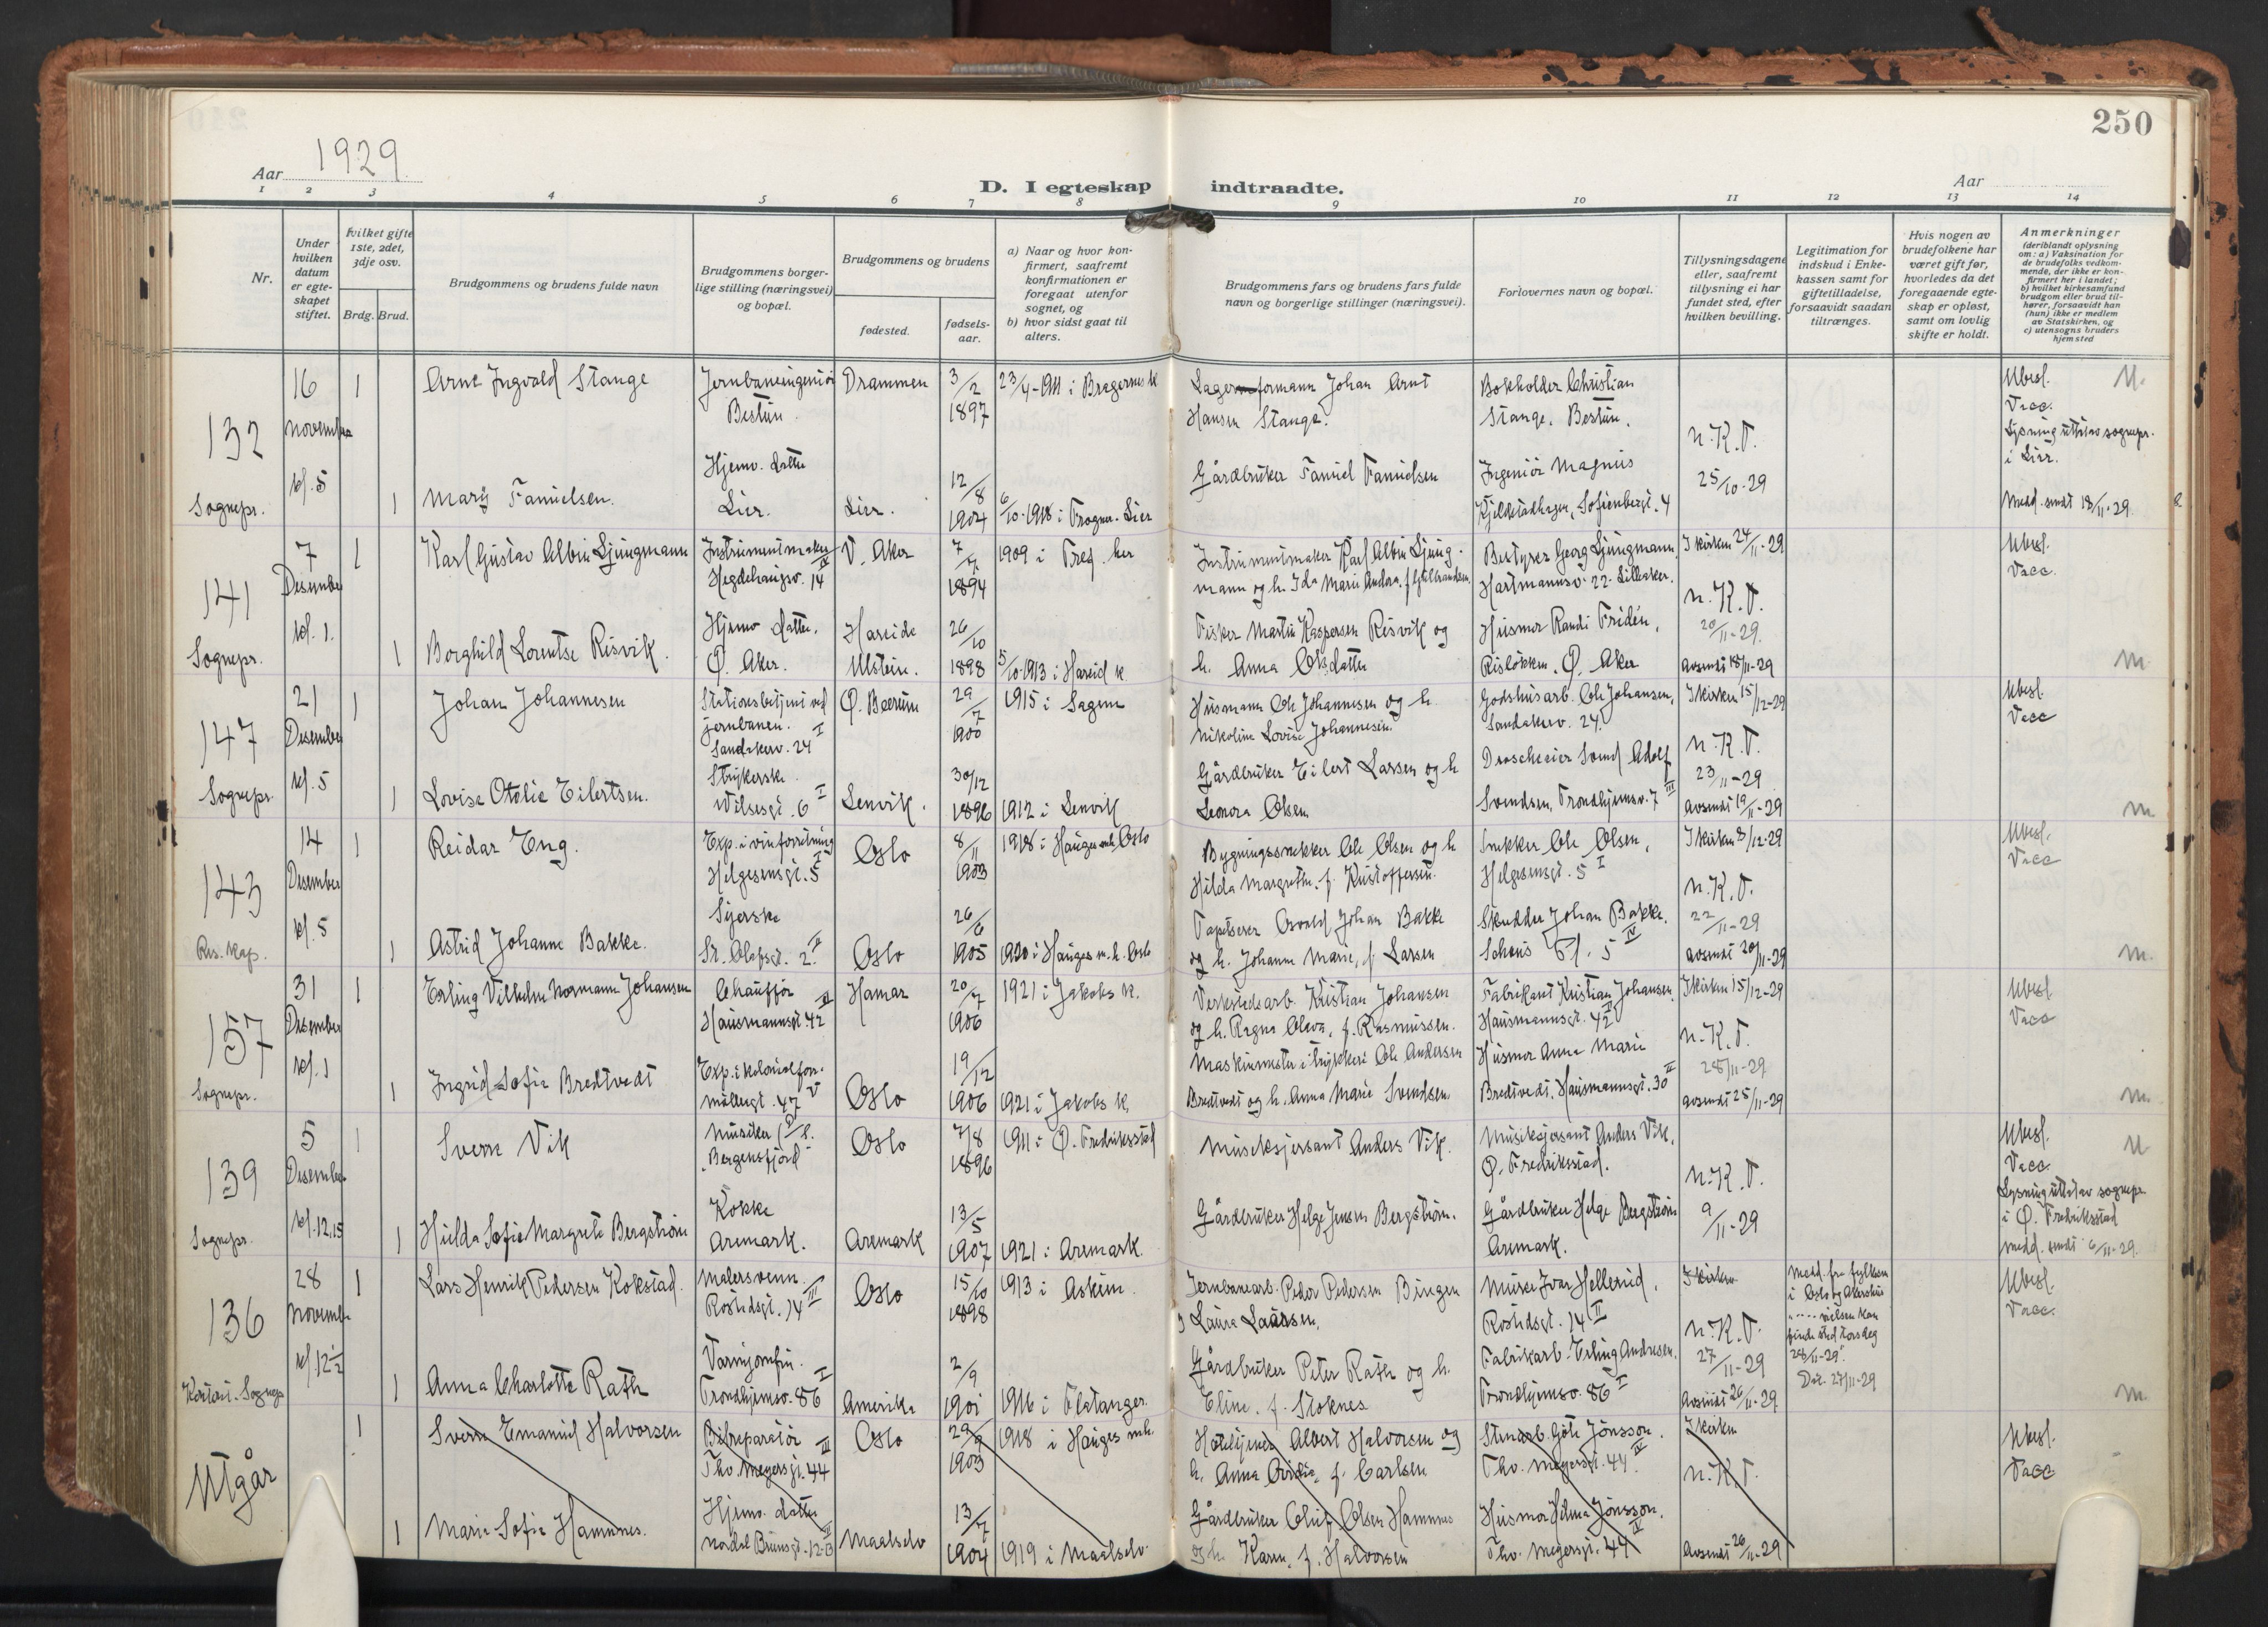 250
Aar 1929.
Aar
D. I egteskap indtraadte.
1 2 3 4 5 6 7 8 9 10 11 12 13 14
Nr.
Under hvilken datum er egteskapet stiftet.
Hvilket gifte 1ste, 2det, 3dje osv.
Brdg. Brud.
Brudgommens og brudens fulde navn
Brudgommens borgerlige stilling (næringsvei) og bopæl.
Brudgommens og brudens
fødested.
fødselsaar.
a) Naar og hvor konfirmert, saafremt konfirmationen er foregaat utenfor sognet, og
b) hvor sidst gaat til alters.
Brudgommens fars og brudens fars fulde navn og borgerlige stillinger (næringsvei).
Forlovernes navn og bopæl.
Tillysningsdagene eller, saafremt tillysning ei har fundet sted, efter hvilken bevilling.
Legitimation for indskud i Enkekassen samt for giftetilladelse, forsaavidt saadan tiltrænges.
Hvis nogen av brudefolkene har været gift før, hvorledes da det foregaaende egteskap er opløst, samt om lovlig skifte er holdt.
Anmerkninger
(deriblandt oplysning om: a) Vaksination for de brudefolks vedkommende, der ikke er konfirmert her i landet;
b) hvilket kirkesamfund brudgom eller brud tilhører, forsaavidt han (hun) ikke er medlem av Statskirken, og
c) utensogns bruders hjemsted
132 Sognepr.
16 November kl. 5
1 Arne Ingvald Stange
Jernbaneingeniør Bestun.
Drammen
3/2 1897
23/4-1911 i Bragernes k
Lagerformann Johan Arnt Hansen Stange.
Bokholder Christian Stange. Bestun.
n. K. P. 25/10-29
Ubesl. Vacc.
Lysning utst. av sognepr. i Lier.
Medd. sendt 18/11-29.
1 Mary Tanielsen.
Hjemv. datter Lier.
Lier.
12/8 1904
6/10-1918 i Frogner. Lier
Gårdbruker Taniel Tanielsen
Ingeniør Magnus Kjildstadhagen, Sofienbergt. 4
141 Sognepr.
7 Desember kl. 1.
1 Karl Gustav Albin Ljungmann
Instrumentmaker Hegdehaugsv. 14 IV
V. Aker
7/7 1894
1909 i Fred. her
Instrumentmaker Karl Albin Ljungmann og h. Ida Marie Andora, f. Gulbrandsen
Bestyrer Georg Ljungmann, Hartmannsv. 22. Lilleaker.
I kirken 24/11-29
n. K. P. 20/11-29.
avsendt 18/11-29
Ubesl. Vacc.
1 Borghild Lorentse Risvik.
Hjemv. datter, Ø. Aker.
Hareide Ulstein.
26/10 1898
5/10-1913 i Hareid k
Fisker Martin Kaspersen Risvik og h. Anna Olsdatter
Husmor Randi Fridén, Risløkken, Ø. Aker
m
147 Sognepr.
21 Desember kl. 5
1 Johan Johannesen
Stationsbetjent ved jernbanen. Sandakerv. 24 I
Ø. Bærum
29/7 1900
1915 i Sagene
Husmann Ole Johannesen og h. Nikoline Lovise Johannesen.
Godshusarb. Ole Johansen, Sandakerv. 24.
I kirken 15/12-29
n. K. P. 23/11-29
avsendt 19/11-29
Ubesl. Vacc
1 Lovise Otolie Eilertsen.
Strykerske. Wilsesgt. 6 I
Lenvik.
30/12 1896
1912 i Lenvik
Gårdbruker Eilert Larsen og h Leonora Olsen
Droscheeier Svend Adolf Svendsen, Trondhjemsv. 7 III
m
143 Res. kap.
14 Desember kl. 5
1 Reidar Eng.
Exp. i vinforretning Helgesensgt. 5 I
Oslo
8/11 1903
1918 i Hauges mh. Oslo
Bygningssnekker Ole Olsen og h Hilda Margrethe, f. Kristoffersen.
Snekker Ole Olsen, Helgesensgt. 5 I
I kirken 8/12-29
n. K. P. 22/11-29
avsendt 20/11-29
Ubesl. Vacc
1 Astrid Johanne Bakke.
Syerske St. Olafsgt. 2 II
Oslo
26/6 1905
1920 i Hauges m.h. Oslo
Tapetserer Osvald Johan Bakke og h. Johanne Marie, f. Larsen
Skredder Johan Bakke, Schous Pl. 5 IV
m.
157 Sognepr.
31 Desember kl. 1
1 Erling Vilhelm Normann Johansen
Chauffør Hausmannsgt. 42 II
Hamar
20/7 1906
1921 i Jakobs k.
Verkstedarb. Kristian Johansen og h. Ragna Oleva, f. Rasmussen.
Fabrikant Kristian Johansen. Hausmannsgt. 42 II
I kirken 15/12-29
n. K. P. 28/11-29
avsendt 25/11-29
Ubesl Vacc
1 Ingrid Sofie Bredtvedt
Exp. i kolonialfor. Møllergt. 47 V
Oslo
19/12 1906
1921 i Jakobs k.
Maskinmester i trykkeri Ole Andersen Bredtvedt og h. Anna Marie Svendsen.
Husmor Anna Marie Bredtvedt, Hausmannsgt. 30 II
m.
139 Sognepr.
5 Desember kl. 12,15
1 Sverre Vik
Musiker D/S. "Bergensfjord"
Oslo
7/8 1896
1911 i Ø. Fredriksstad
Musiksjersant Anders Vik.
Musiksjersant Anders Vik, Ø. Fredriksstad.
n. K. P. 9/11-29
Ubesl. Vacc.
Lysning utst. av sognepr. i Ø. Fredriksstad
medd. sendt 6/11-29.
1 Hulda Sofie Margrete Bergstrøm
Kokke Aremark.
Aremark
13/5 1907
1921 i Aremark.
Gårdbruker Helge Jensen Bergstrøm.
Gårdbruker Helge Bergstrøm Aremark.
136 Kontoret. Sognepr
28 November kl. 12 1/2
1 Lars Henrik Pedersen Kokstad.
Malersvenn. Rostedsgt. 14 III
Oslo
15/10 1898
1913 i Askim.
Jernbanearb. Peder Pedersen Bingen
Laura Laarsen.
Murer Ivar Hellerud, Rostedsgt. 14 II
I kirken
n. K. P. 27/11-29
avsendt 26/11-29
Medd. fra fylken i Oslo og Akershus " ---- vielsen kan finde sted torsdag 28/11-29".
Dat. 27/11-29
Ubesl. Vacc.
1 Anna Charlotte Rath
Varmjomfru. Trondhjemsv. 86 I
Amerika
2/9 1901
1916 i Flatanger.
Gårdbruker Peter Rath og h. Eline, f. Stoknes
Fabrikarb. Erling Andresen. Trondhjemsv. 86 I
m
Utgår
1 Sverre Emanuel Halvorsen
Bilreparatør Thv. Meyersgt. 44 III
Oslo
29/9 1903
1918 i Hauges mh.
Hoteltjener Albert Halvorsen og h. Anna Ovidia, f. Carlsen
Stenarb. Göte Jönsson. Thv. Meyersgt. 44 IV
I kirken
n. K. P.
avsendt 26/11-29
Ubesl. Vacc
1 Marie Sofie Hamnes.
Hjemv. datter Nordal Brunsgt. 12 B II
Maalselv
13/7 1904
1919 i Maalselv.
Gårdbruker Oluf Olsen Hamnes og h. Karen, f. Halvorsen
Husmor Hilma Jönsson, Thv. Meyersgt. 44 IV